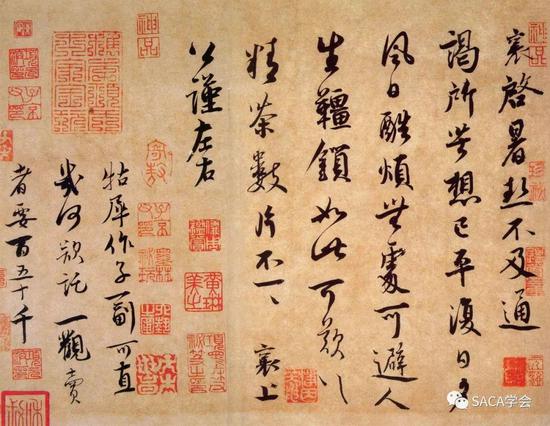 襄啓暑熱不及通
謁所苦想已平復日夕
風日酷煩無處可避人
生韁鎖如此可歎〻
精茶數片不一一 襄上
公謹左右
牯犀作子一副可直
幾何欲託一觀賣
者要百五十千
神品
SACA学会